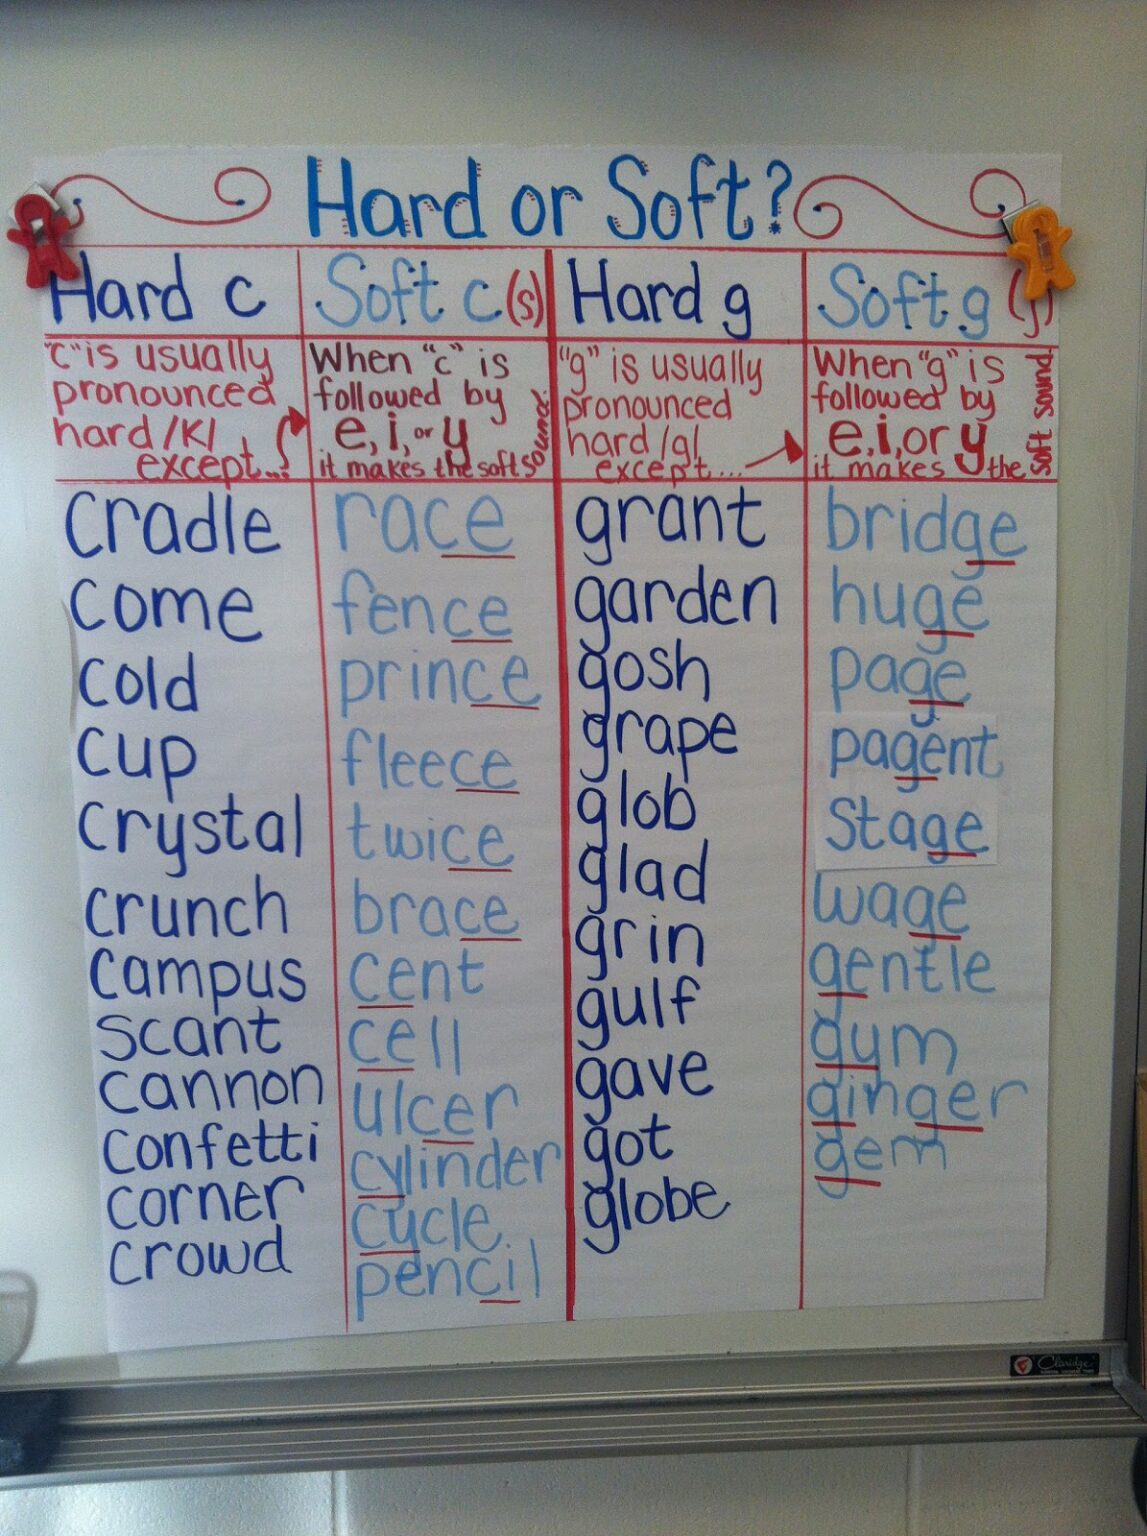 Hard or Soft?
Hard c
"c" is usually
pronounced
hard /K/
except...
cradle
come
cold
cup
crystal
crunch
campus
scant
cannon
confetti
corner
crowd
Soft c (s)
When "c" is
followed by
e, i, or y
it makes the soft sound.
race
fence
prince
fleece
twice
brace
cent
cell
ulcer
cylinder
cycle
pencil
Hard g
"g" is usually
pronounced
hard /g/
except...
grant
garden
gosh
grape
glob
glad
grin
gulf
gave
got
globe
Soft g (j)
When "g" is
followed by
e, i, or y
it makes the soft sound
bridge
huge
page
pagent
stage
wage
gentle
gym
ginger
gem
Claridge